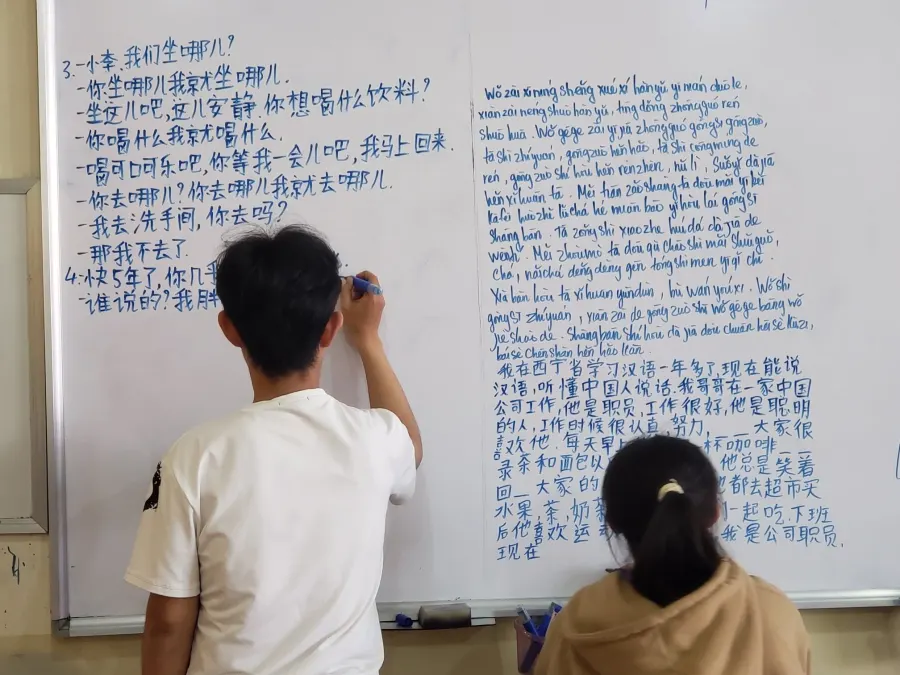 3.-小李,我们坐哪儿?
-你坐哪儿我就坐哪儿.
-坐这儿吧,这儿安静.你想喝什么饮料?
-你喝什么我就喝什么.
-喝可口可乐吧,你等我一会儿吧,我马上回来.
-你去哪儿?你去哪儿我就去哪儿.
-我去洗手间,你去吗?
-那我不去了.
4.-快5年了,你几
-谁说的?我胖
Wǒ zài xīníng shěng xué xí hànyǔ yì nián duō le,
xiàn zài néng shuō hàn yǔ, tīng dǒng zhōngguó rén
shuō huà. Wǒ gēge zài yì jiā zhōngguó gōngsī gōngzuò,
tā shì zhíyuán, gōngzuò hěn hǎo, tā shì cōngmíng de
rén, gōng zuò shí hòu hěn rènzhēn, nǔ lì. Suǒyǒu dà jiā
hěn xǐ huān tā. Měi tiān zǎo shang tā dōu mǎi yì bēi
kā fēi huòzhě lǜ chá hé miàn bāo yǐ hòu lái gōng sī
shàng bān. Tā zǒng shì xiào zhe huí dá dà jiā de
wèntí. Měi zhōumò tā dōu qù chāo shì mǎi shuǐ guǒ,
chá, nǎi chá děng děng gēn tóng shì men yì qǐ chī.
Xià bān hòu tā xǐ huan yùndòng, bù wán yóu xì. Wǒ shì
gōng sī zhíyuán, xiàn zài de gōng zuò shì wǒ gē ge bāng wǒ
jiè shào de. Shàng bān shí hòu dà jiā dōu chuān hēi sè kùzi,
bái sè chèn shān hěn hǎo kàn.
我在西宁省学习汉语一年多了,现在能说
汉语,听懂中国人说话.我哥哥在一家中国
公司工作,他是职员,工作很好,他是聪明
的人,工作时候很认真,努力,_ _大家很
喜欢他.每天早上 杯咖啡_ _
录茶和面包以 他总是笑着
回_大家的 都去超市买
水果,茶,奶 一起吃.下班
后他喜欢运 我是公司职员,
现在